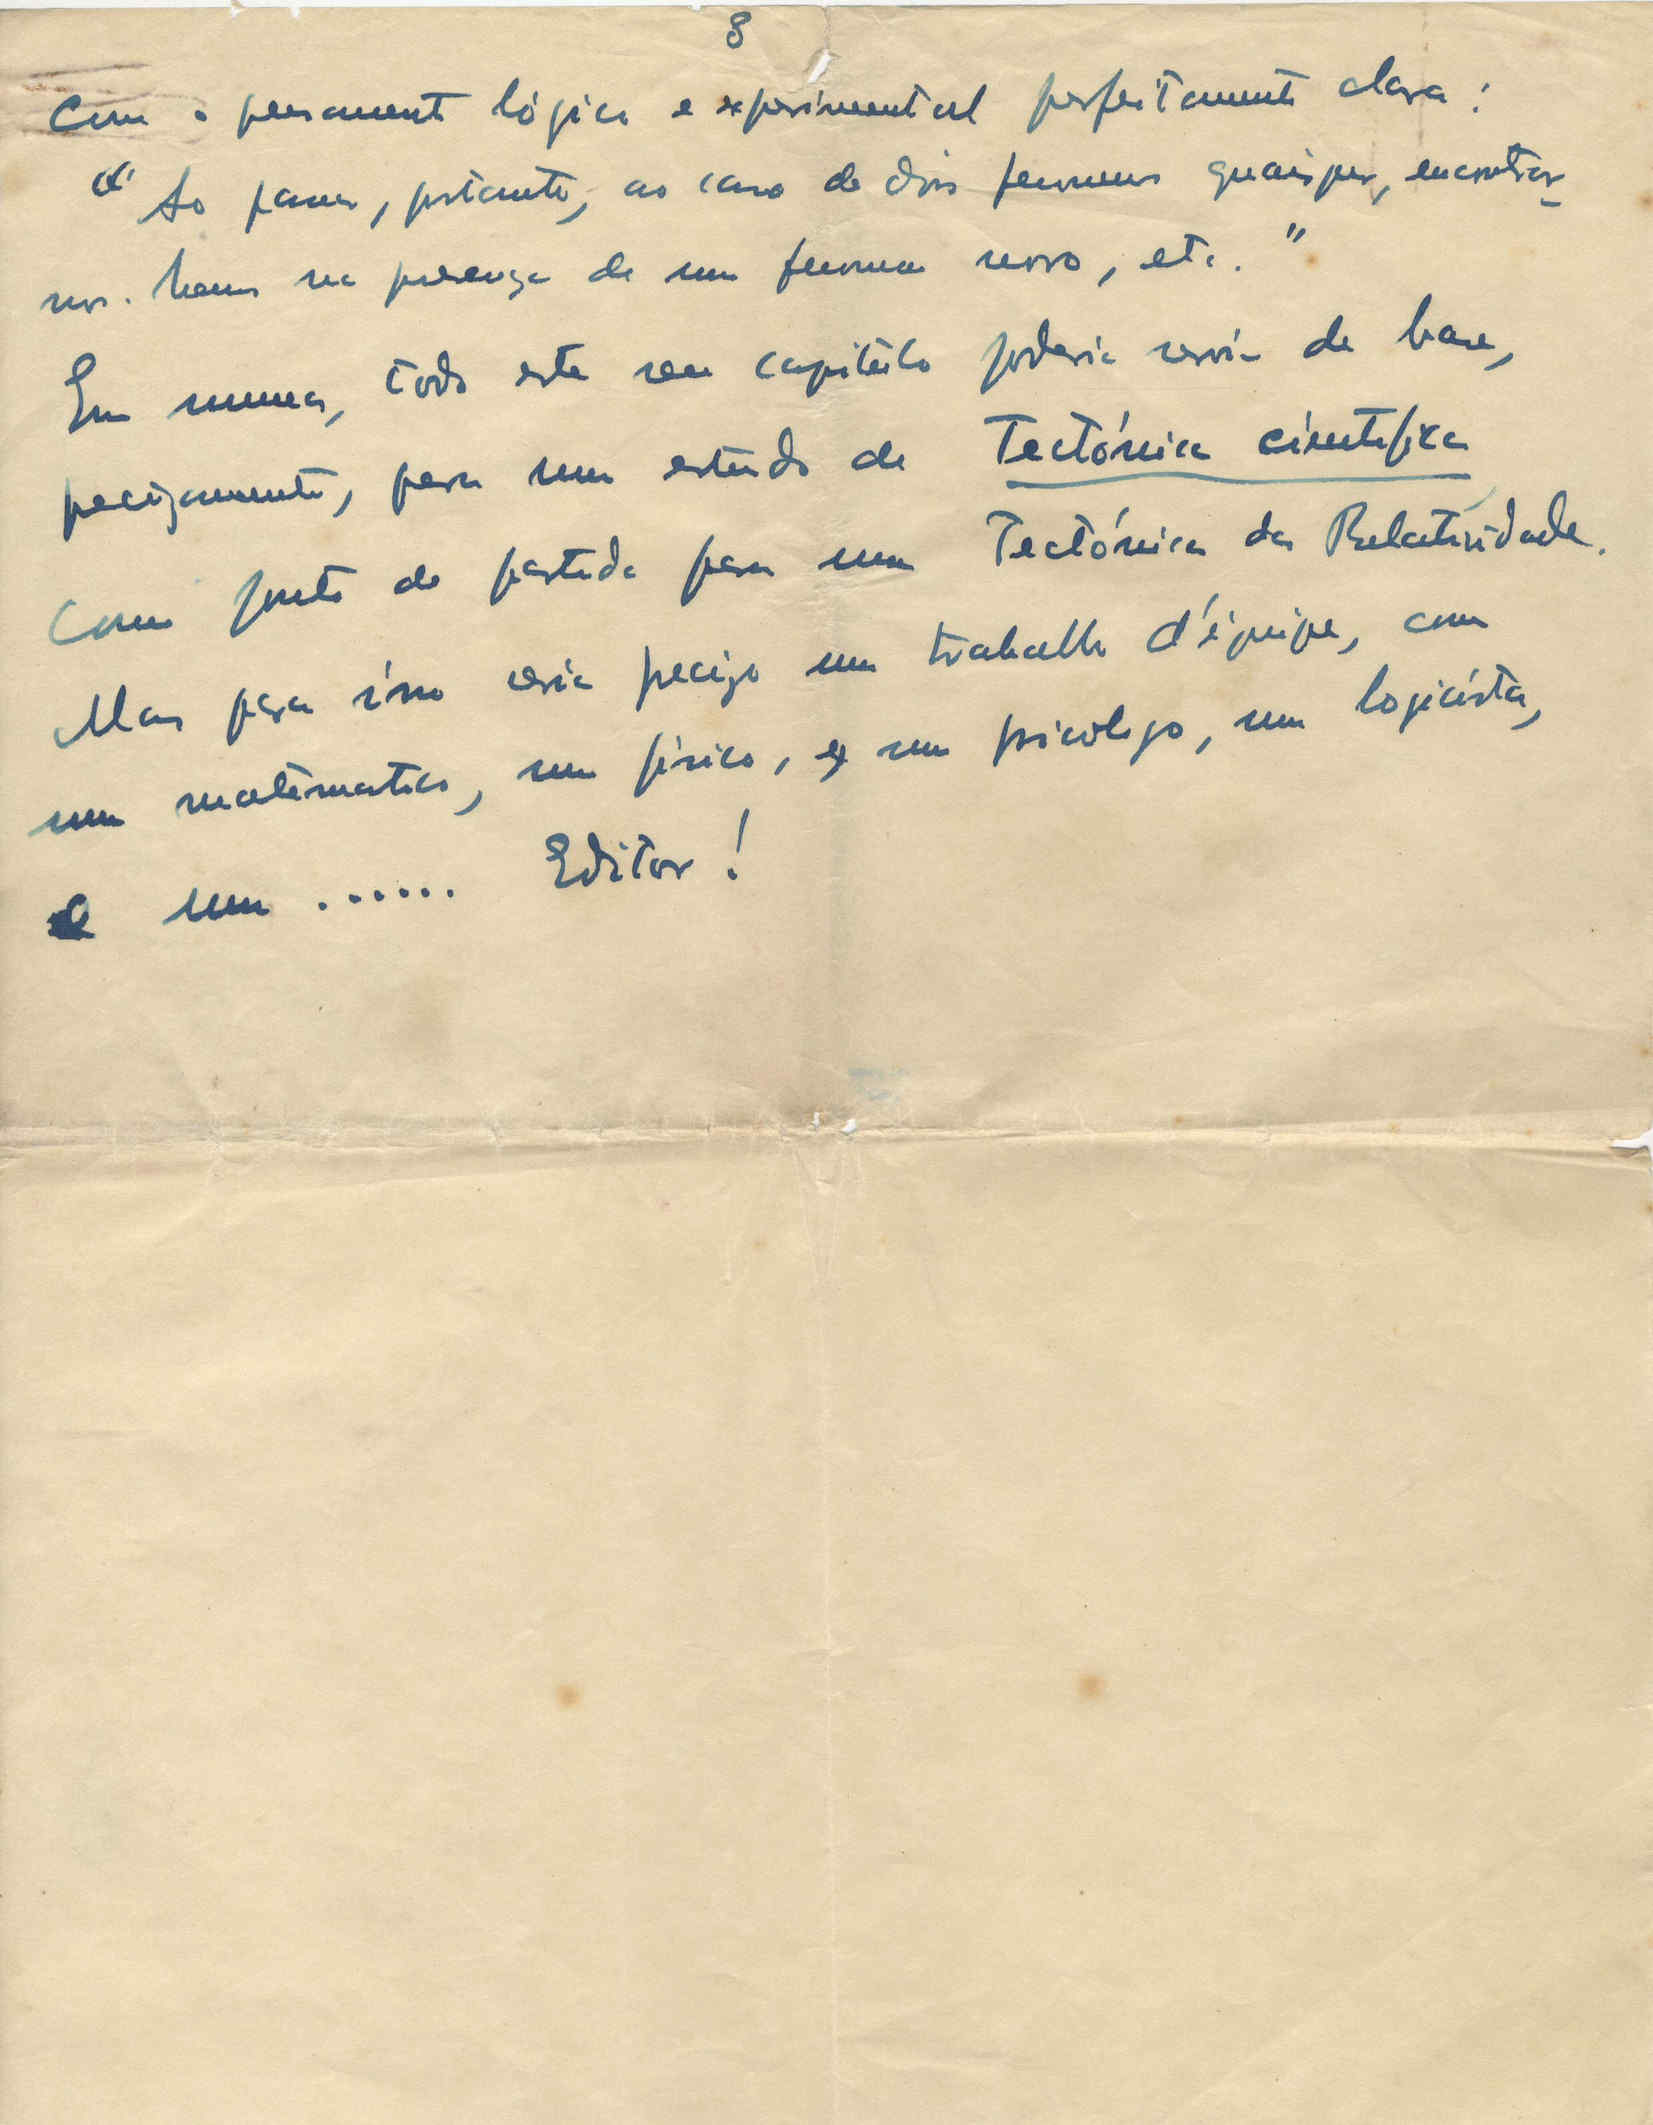 8
com o pensamento lógico e experimental perfeitamente clara:
"Ao passar, portanto, ao caso de dois fenomenos quaisquer, encontrar-
nos-hemos na presença de um fenomeno novo, etc."
Em suma, todo este seu capitúlo poderia servir de base,
precizamente, para um estudo de Tectónica cientifica
como ponto de partida para uma Tectónica da Relatividade.
Mas para isso seria precizo um trabalho d'équipe, com
um matematico, um físico, um psicólogo, um logicista,
e um ...... Editor!